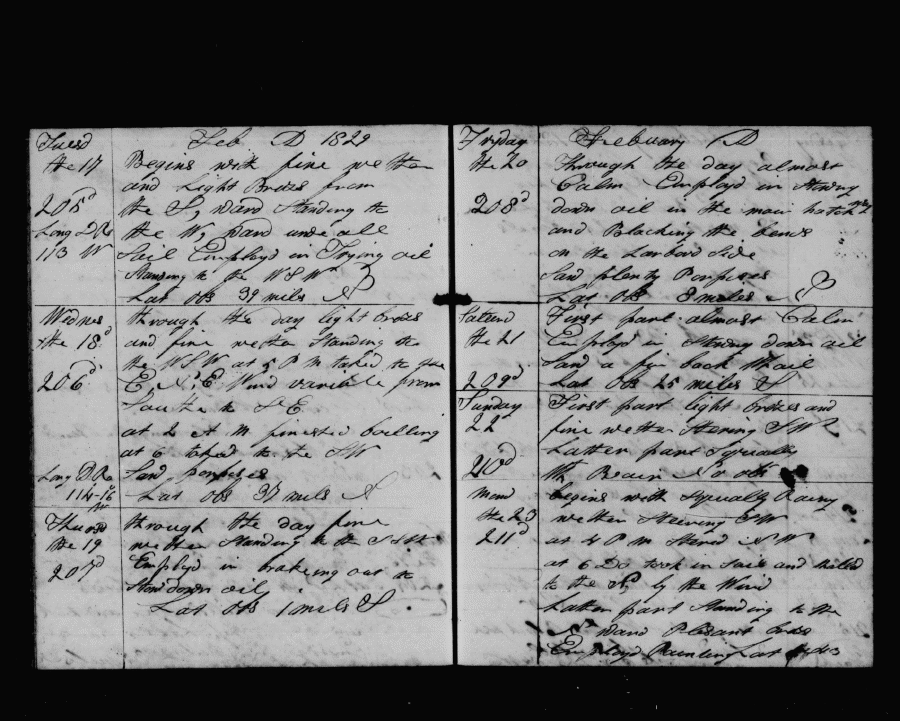 Tuesd Feb D 1829
the 17 Begins with fine wether
and Light Brezes from
205d the S, ward Standing to
Long D R the W, ward unde all
113 W Sail Employd in Trying oil
Standing to the W S W
Lat obs 39 miles N
Wednes through the day light brezes
the 18d and fine wether Standing to
the W S W at 5 P M taked to the
206d E N, E Wind variable from
Southe to S E
at 2 A M finested boilling
at 6 taked to the S W
Long D R Saw porpises
114-16 W Lat obs 37 mils N
Thurs through the day fine
the 19 wether Standing to the
207d Employd in brakeing out &
Stow down oil
Lat obs 1 mils S
Fryday Febuary D
the 20 through the day almost
Calm Employd in Stowing
208d down oil in the main hatch
and Blacking the bends
on the Larbord Side
Saw plenty Porpises
Lat obs 8 miles
Saturd First part almost Calm
the 21 Employd in Stowing down oil
Saw a fin back Whail
209d Lat obs 25 miles S
Sunday First part light brezes and
22d fine wether Stering S W
Latter part Squally
210d Wh Reain No obs
Mond begins with Squally Rainy
the 23 wether Steering S W
211d at 4 P M Stered N W
at 6 Do took in Sail and
to the by the Wind
Latter part Standing to the
ward Plesant brezes
Employd Painting Lat